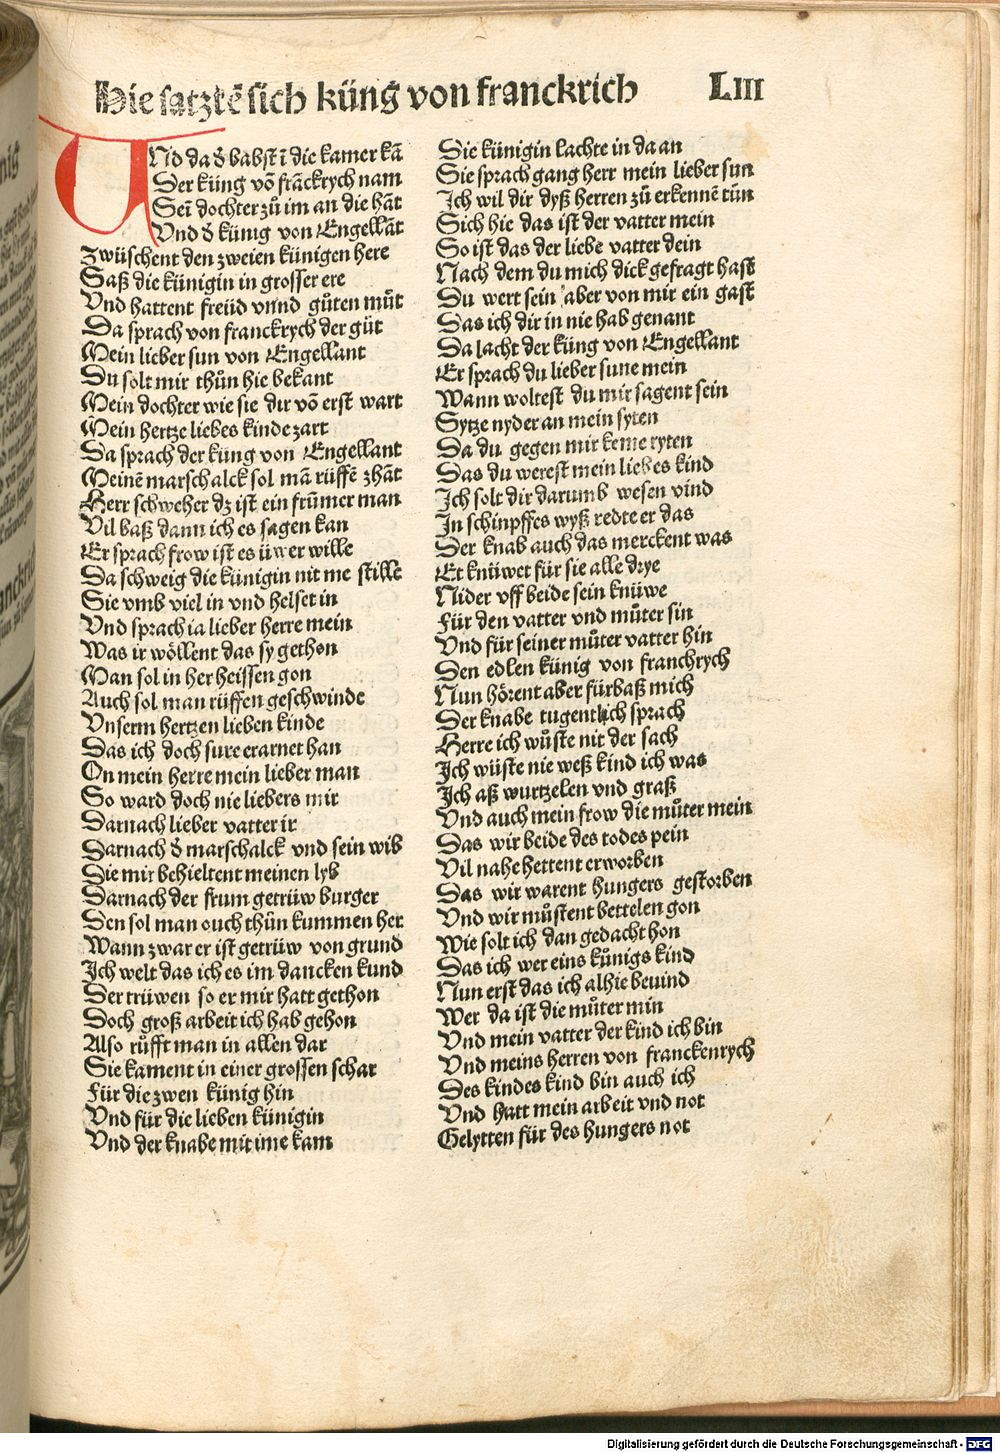 Hie satztē sich küng von franckrich LIII
VNd da d̕ babst ī die kamer kā
Der küng vō frāckrych nam
Sei͂ dochter zů im an die hāt
Vnd d̕ künig von Engellāt
Zwüschent den zweien künigen here
Saß die künigin in grosser ere
Vnd hattent freüd vnnd gůten můt
Da sprach von franckrych der gůt
Mein lieber sun von Engellant
Du solt mir thůn hie bekant
Mein dochter wie sie dir vō erst wart
Mein hertze liebes kinde zart
Da sprach der küng von Engellant
Meinē marschalck sol mā rüffē zhāt
Herr schweher dz ist ein frūmer man
Vil baß dann ich es sagen kan
Er sprach frow ist es üwer wille
Da schweig die künigin nit me stille
Sie vmb viel in vnd helset in
Vnd sprach ia lieber herre mein
Was ir wöllent das sy gethon
Man sol in her heissen gon
Auch sol man rüffen geschwinde
Vnserm hertzen lieben kinde
Das ich doch sure erarnet han
On mein herre mein lieber man
So ward doch nie liebers mir
Darnach lieber vatter ir
Darnach d̕ marschalck vnd sein wib
Die mir behieltent meinen lyb
Darnach der frum getrüw burger
Den sol man ouch thůn kummen her
Wann zwar er ist getrüw von grund
Ich welt das ich es im dancken kund
Der trüwen so er mir hatt gethon
Doch groß arbeit ich hab gehon
Also růfft man in allen dar
Sie kament in einer grossen schar
Für die zwen künig hin
Vnd für die lieben künigin
Vnd der knabe mit ime kam
Die künigin lachte in da an
Sie sprach gang herr mein lieber sun
Ich wil dir dyß herren zů erkennē tůn
Sich hie das ist der vatter mein
So ist das der liebe vatter dein
Nach dem du mich dick gefragt hast
Du wert sein aber von mir ein gast
Das ich dir in nie hab genant
Da lacht der küng von Engellant
Er sprach du lieber sune mein
Wann woltest du mir sagent sein
Sytze nyder an mein syten
Da du gegen mir keme ryten
Das du werest mein liebes kind
Ich solt dir darumb wesen vind
In schinpffes wyß redte er das
Der knab auch das merckent was
Et knüwet für sie alle drye
Nider vff beide sein knüwe
Für den vatter vnd můter sin
Vnd für seiner můter vatter hin
Den edlen künig von franchrych
Nun hörent aber fürbaß mich
Der knabe tugentlich sprach
Herre ich wůste nit der sach
Ich wüste nie weß kind ich was
Ich aß wurtzelen vnd graß
Vnd auch mein frow die můter mein
Das wir beide des todes pein
Vil nahe hettent erworben
Das wir warent hungers gestorben
Vnd wir můstent bettelen gon
Wie solt ich dan gedacht hon
Das ich wer eins künigs kind
Nun erst das ich alhie beuind
Wer da ist die můter min
Vnd mein vatter der kind ich bin
Vnd meins herren von franckenrych
Des kindes kind bin auch ich
Vnd hatt mein arbeit vnd not
Gelytten für des hungers not
Digitalisierung gefördert durch die Deutsche Forschungsgemeinschaft - DFG